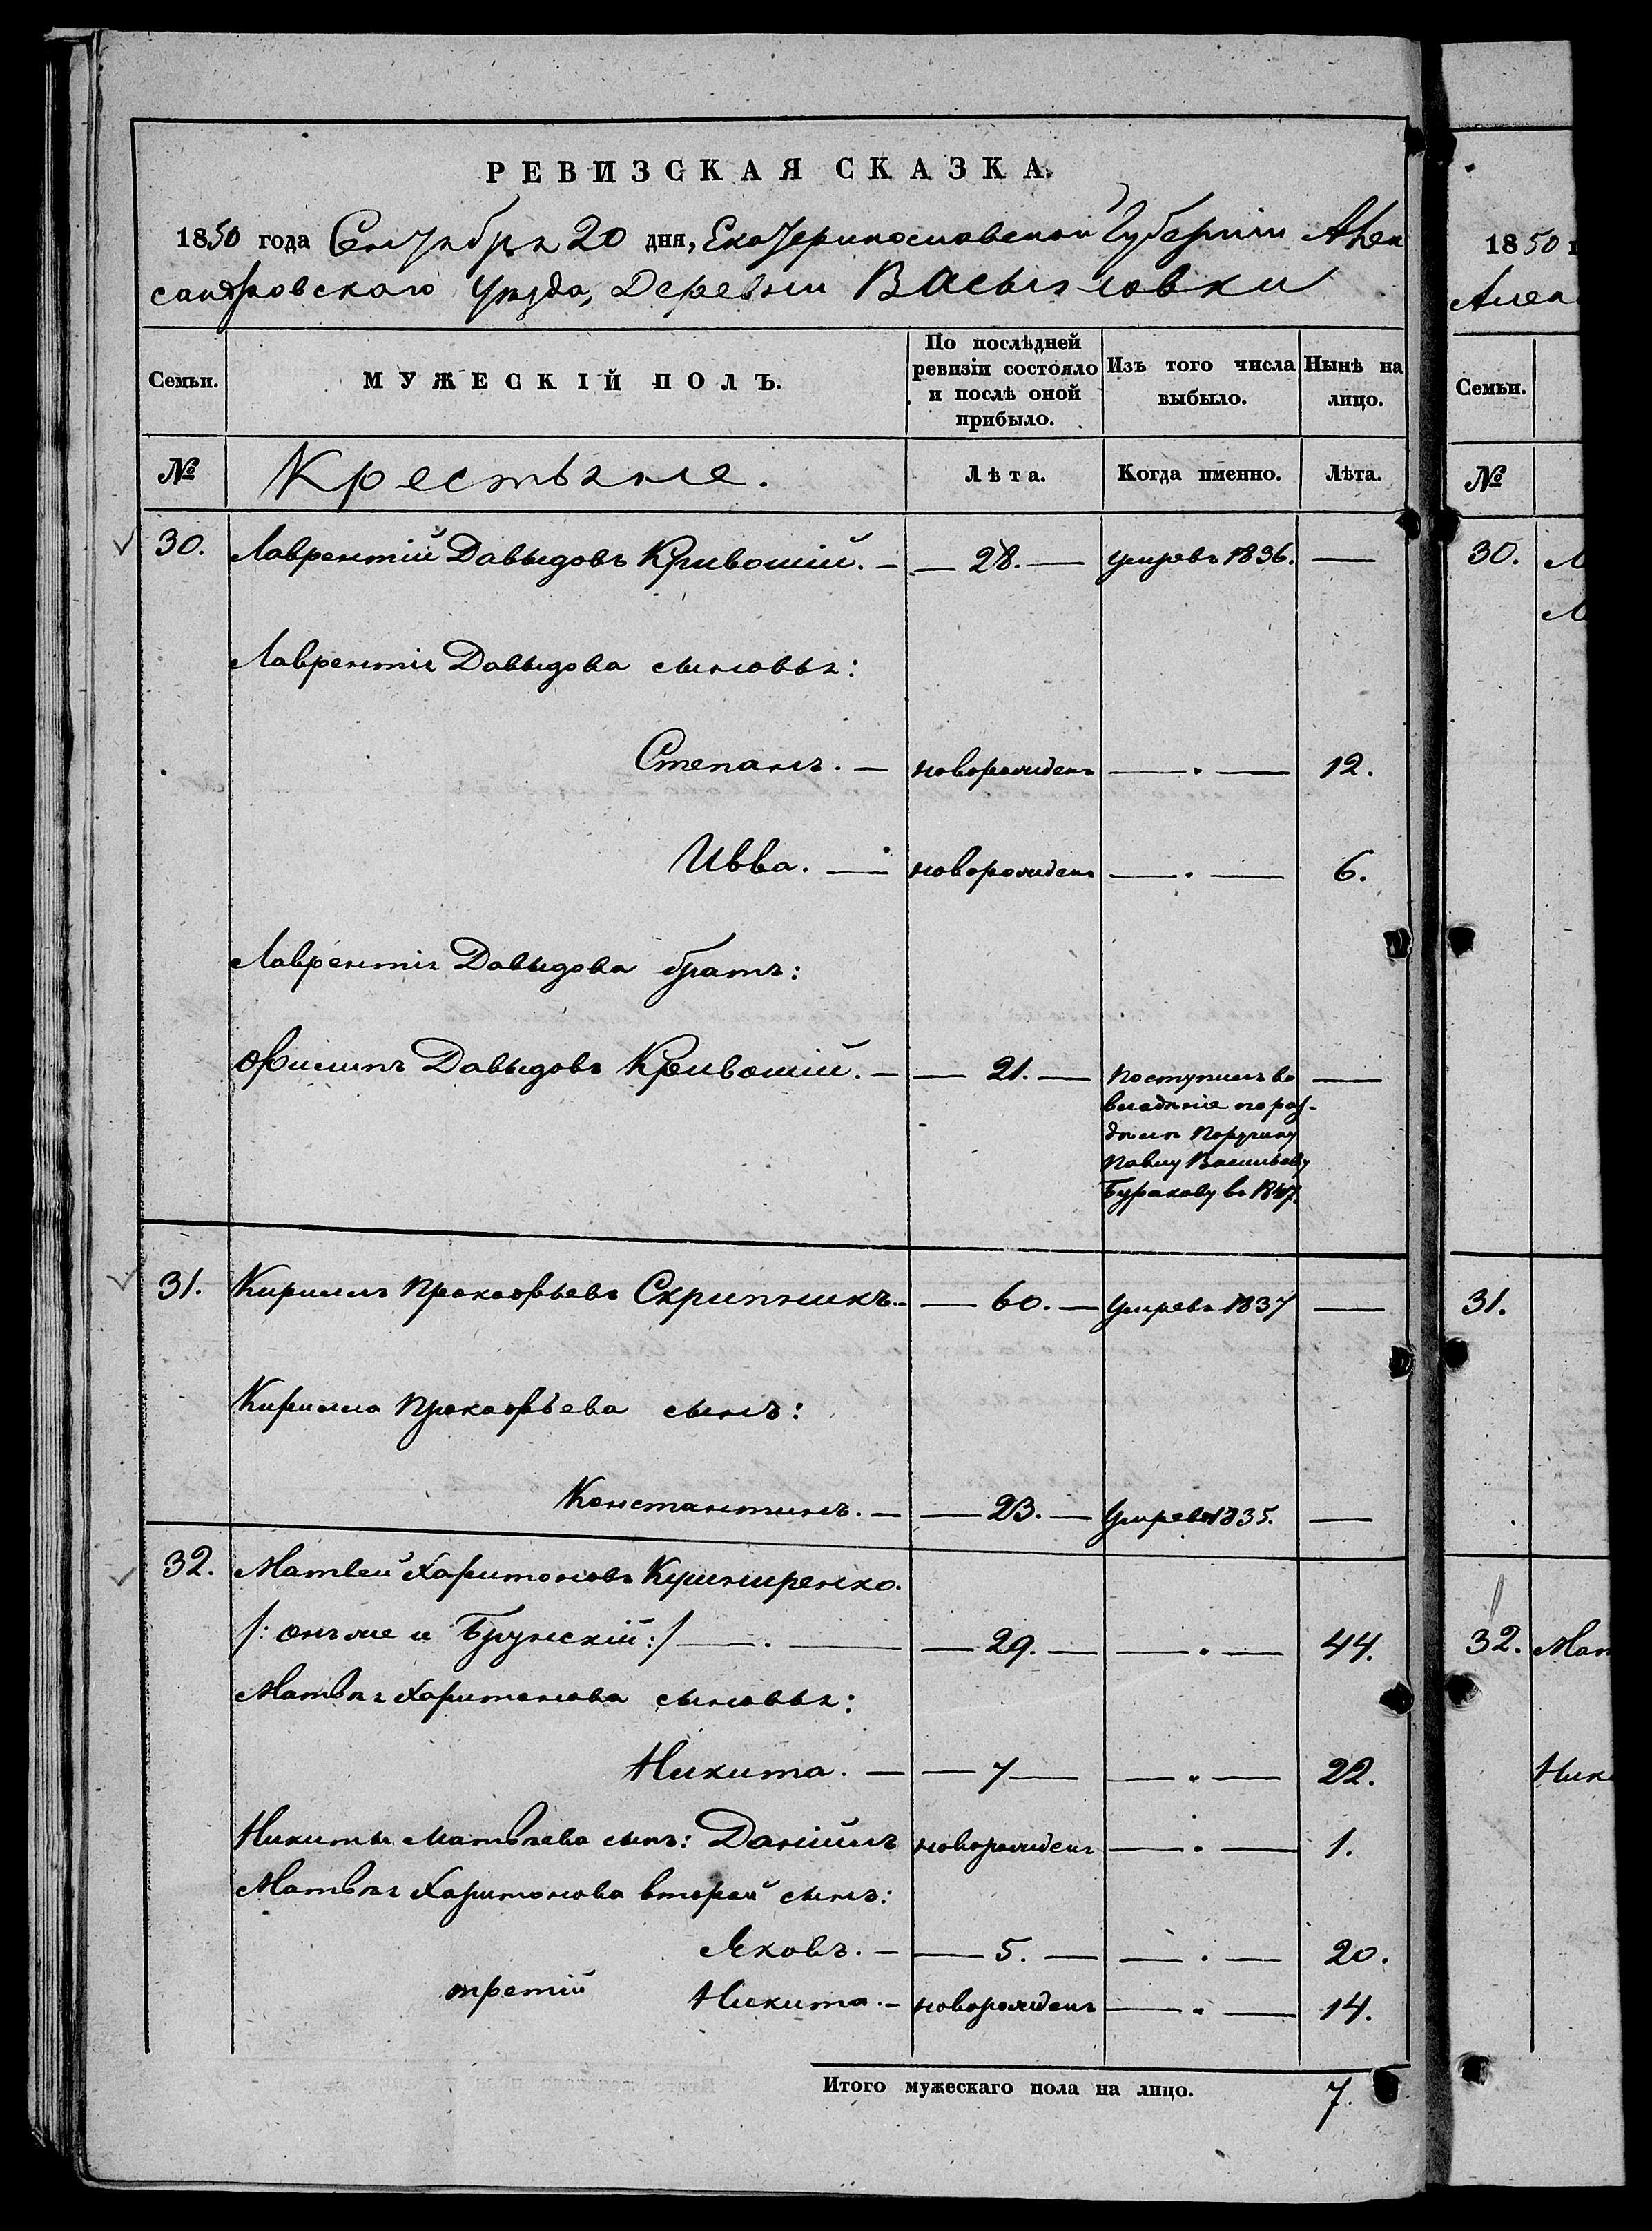 РЕВИЗСКАЯ СКАЗКА.
1850 года Сентября 20 дня, Екатеринославской Губерніи Алек
сандровского Уезда, Деревни Васильовки
Семьи. МУЖЕСКІЙ ПОЛЪ. По послѣдней ревизіи состояло и послѣ оной прибыло. Изъ того числа выбыло. Нынѣ на лицо.
№ Крестьяне. Лѣта. Когда именно. Лѣта.
30. Лаврентій Давыдовъ Кривошій. — — 28. — умровъ 1836. —
Лаврентія Давыдова сыновья:
Степанъ. — новорожденъ — . — 12.
Ивва. — новорожденъ — . — 6.
Лаврентія Давыдова братъ:
Филипъ Давыдовъ Кривошій. — — 21. — Поступилъ во —
владѣніе по раз-
дѣлу Поручику
Павлу Васильеву
Буракову въ 1847.
31. Кирилъ Прокофьевъ Скрипникъ. — — 60. — Умревъ 1837 —
Кирилла Прокофьева сынъ:
Константинъ. — — 23. — Умревъ 1835. —
32. Матвей Харитоновъ Кушниренко.
/: онъ же и Брунскій :/ — . — — 29. — — . — 44.
Матвѣя Харитонова сыновья:
Никита. — — 7 — — „ — 22.
Никиты Матвѣева сынъ: Даніилъ новорожденъ — . — 1.
Матвѣя Харитонова второй сынъ:
Яковъ. — — 5. — — . — 20.
третій Никита. — новорожденъ — „ — 14.
Итого мужескаго пола на лицо. 7.
1850 г
Алек
Семьи.
№
30. Л
Л
31.
32. Мат
Ники